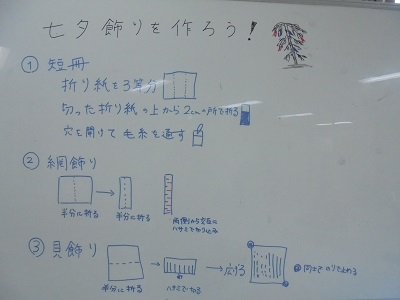 七夕飾りを作ろう!
① 短冊
折り紙を3等分
切った折り紙の上から2cmの所で折る
穴を開けて毛糸を通す
② 網飾り
半分に折る
半分に折る
両側から交互にハサミで切り込み
③ 貝飾り
半分に折る
ハサミで切る
広げる
◎同士でのりで止める